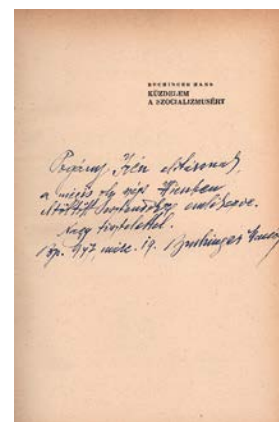 BUCHINGER MANÓ
KÜZDELEM
A SZOCIALIZMUSÉRT
Pogány Irén
a mégis oly szép
eltöltött emlékére.
Nagy tisztelettel
Bp. 947, márc. 19. Buchinger Manó